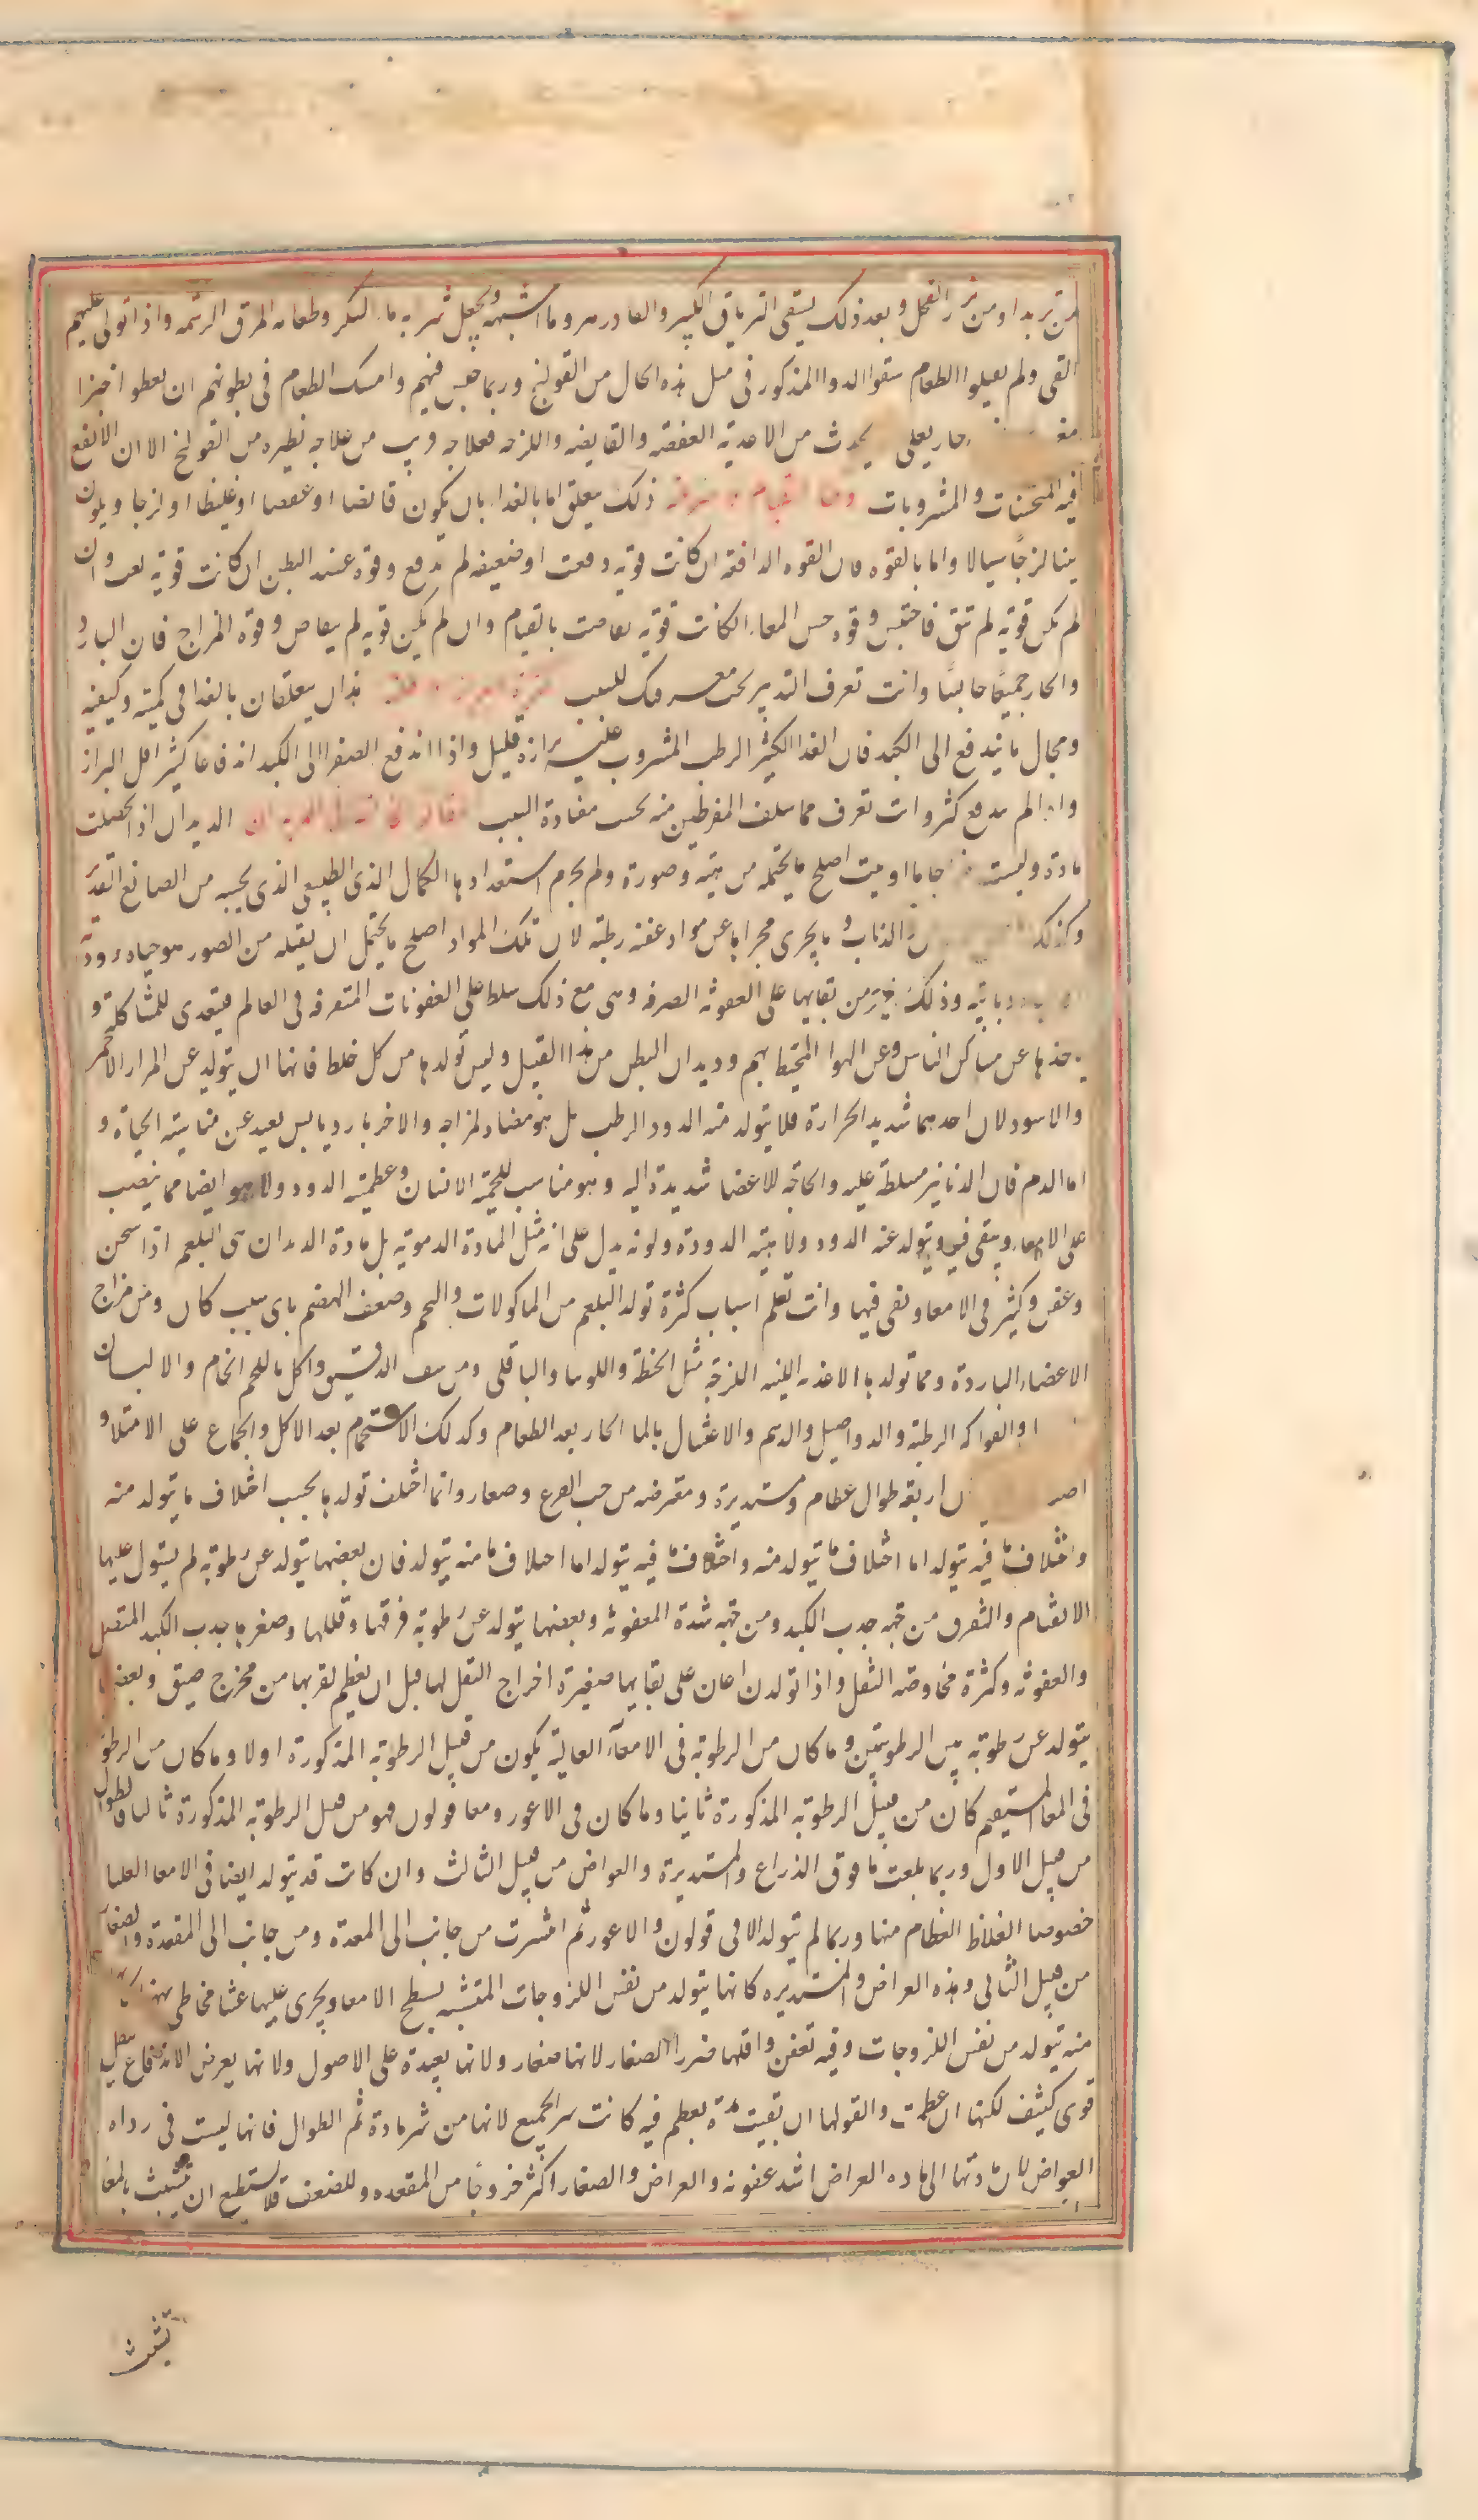 من تربد او من بزر الفجل وبعد ذلك يسقى الترياق الكبير والفادزهر وما اشبهه ويجعل شربه ماء السكر وطعامه المرق الدسمه واذا تولى عليهم
القى ولم يقبلوا الطعام سقوا الدوا المذكور فى مثل هذه الحال من القولنج وربما حبس قيهم وامسك الطعام فى بطونهم ان يعطو اخبزا
يحدث من الاغذية العفصه والقابضه واللزجه فعلاجه قريب من علاجه نظيره من القولنج الا ان الانفع
فيه المحقنات والمشروبات ذلك يتعلق اما بالغدا بان يكون قابضا او عفصا او غليظا او لزجا ويكون
لينا لزجًا سيالا واما بالقوه فان القوه الدافعه ان كانت قويه دفعت او ضعيفه لم تدفع وقوة عضد البطن ان كانت قويه نعت وان
لم تكن قويه لم تنق فاحتبس وقوه حس المعاء ان كانت قويه تعاضت بالقيام وان لم تكن قويه لم يتعاض وقوه المزاج فان البارد
والحار جميعًا حابسًا وانت تعرف التدبير بحسب معرفتك للسبب هذان يتعلقان بالغدا فى كميته وكيفيته
وبحال ما يندفع الى الكبد فان الغدا الكثير الرطب المشروب عليه برازه قليل واذا اندفع الصفوا الى الكبد اندفاعا كثيرا قل البراز
واذا لم يندفع كثر وانت تعرف مما سلف المفرطين منه بحسب مضادة السبب الديدان اذا حصلت
مادة وليست مزاجا ما اوتيت اصلح ما يحتمله من هيئة وصورة ولم يحرم استعدادها الكمال الذى الطبيعى الذى يحبيه من الصانع القدير
وكذلك الذباب وما يجرى مجراها عن مواد عفنه رطبته لان تلك المواد اصلح ما يحتمل ان يقبله من الصور هو حياه دودية
او ذبابيه وذلك خير من بقايها على العفونه الصرفه وهى مع ذلك تسلط على العفونات المتفرقه فى العالم فيتغدى للمشاكلة و
يخذها عن مساكن الناس وعن الهوا المحيط بهم وديدان البطن من هذا القبيل وليس تولدها من كل خلط فانها لن يتولد عن المرار الاحمر
والاسود لان احدهما شديد الحرارة فلا يتولد منه الدود الرطب بل هو مضاد لمزاجه والاخر بارد يابس بعيد عن مناسبته الحياة و
اما الدم فان الذنانير مسلطة عليه والحاجه للاعضا شديدة اليه وهو مناسب للحمية الانسان وعظمية الدود ولا هو ايضا مما ينصب
على الامعاء ويبقى فيه ويتولد عنه الدود ولا هيئة الدودة ولونه يدل على انه مثل المادة الدمويه بل مادة الديدان هى البلغم اذا سخن
وعفن وكثر فى الامعا وبقى فيها وانت تعلم اسباب كثرة تولد البلغم من الماكولات والتخم وضعف الهضم باى سبب كان ومن مزاج
الاعضاء الباردة ومما تولدها الاغذيه اللينه اللزجة مثل الحنطة واللوبيا والباقلى ومن سف الدقيق واكل ما للحم الخام والالبان
والفواكه الرطبة والدواصيل والدسم والاغتسال بالما الحار بعد الطعام وكذلك الاستحمام بعد الاكل والجماع على الامتلا و
اربعه طوال عظام ومستديرة ومعترضه من حب القرع وصغار وانما اختلف تولدها بحسب اختلاف ما يتولد منه
واختلاف ما فيه يتولد اما اختلاف ما يتولد منه واختلاف ما فيه يتولد اما اختلاف ما منه يتولد فان بعضها يتولد عن رطوبة لم يستول عليها
الانقسام والتفرق من جهة جذب الكبد ومن جهة شدة العفونه وبعضها يتولد عن رطوبة فرقها وقللها وصغرها جذب الكبد المتصل
والعفونه وكثرة مخاوضه الثفل واذا تولدن اعان على بقايها صغيرة اخراج الثفل لها قبل ان يعظم لقربها من مخرج ضيق وبعضها
يتولد عن رطوبة بين الرطوبتين وما كان من الرطوبة فى الامعاء العالية يكون من قبيل الرطوبة المذكورة اولا وما كان من الرطوبة
فى المعا المستقيم كان من قبيل الرطوبة المذكورة ثانيا وما كان فى الاعور ومعا قولون فهو من قبيل الرطوبة المذكورة ثالثا فالطوال
من قبيل الاول وربما بلغت ما فوق الذراع والمستديرة والعراض من قبيل الثالث وان كانت قد يتولد ايضا فى الامعا العليا
خصوصا الغلاظ العظام منها وربما لم يتولد الا فى قولون والاعور ثم انتشرت من جانب الى المعدة ومن جانب الى المقعدة والصغار
من قبيل الثانى وهذه العراض والمستديره كانها يتولد من نفس اللزوجات المتشبثه بسطح الامعا ويجرى عليها غشا مخاطى
منه يتولد من نفس اللزوجات وفيه تعفن واقلها ضررا الصغار لانها صغار ولانها بعيدة على الاصول ولانها يعرض الاندفاع بثفل
قوى كثيف لكنها ان عظمت والقولها ان بقيت مدة يعظم فيه كانت شر الجميع لانها من شر مادة ثم الطوال فانها ليست فى رداه
العراض لان مادتها الى ماده العراض اشد عفونه والعراض والصغار اكثر خروجًا من المقعده وللضعف فلا تستطيع ان تتشبث بالمعا
تتشبث